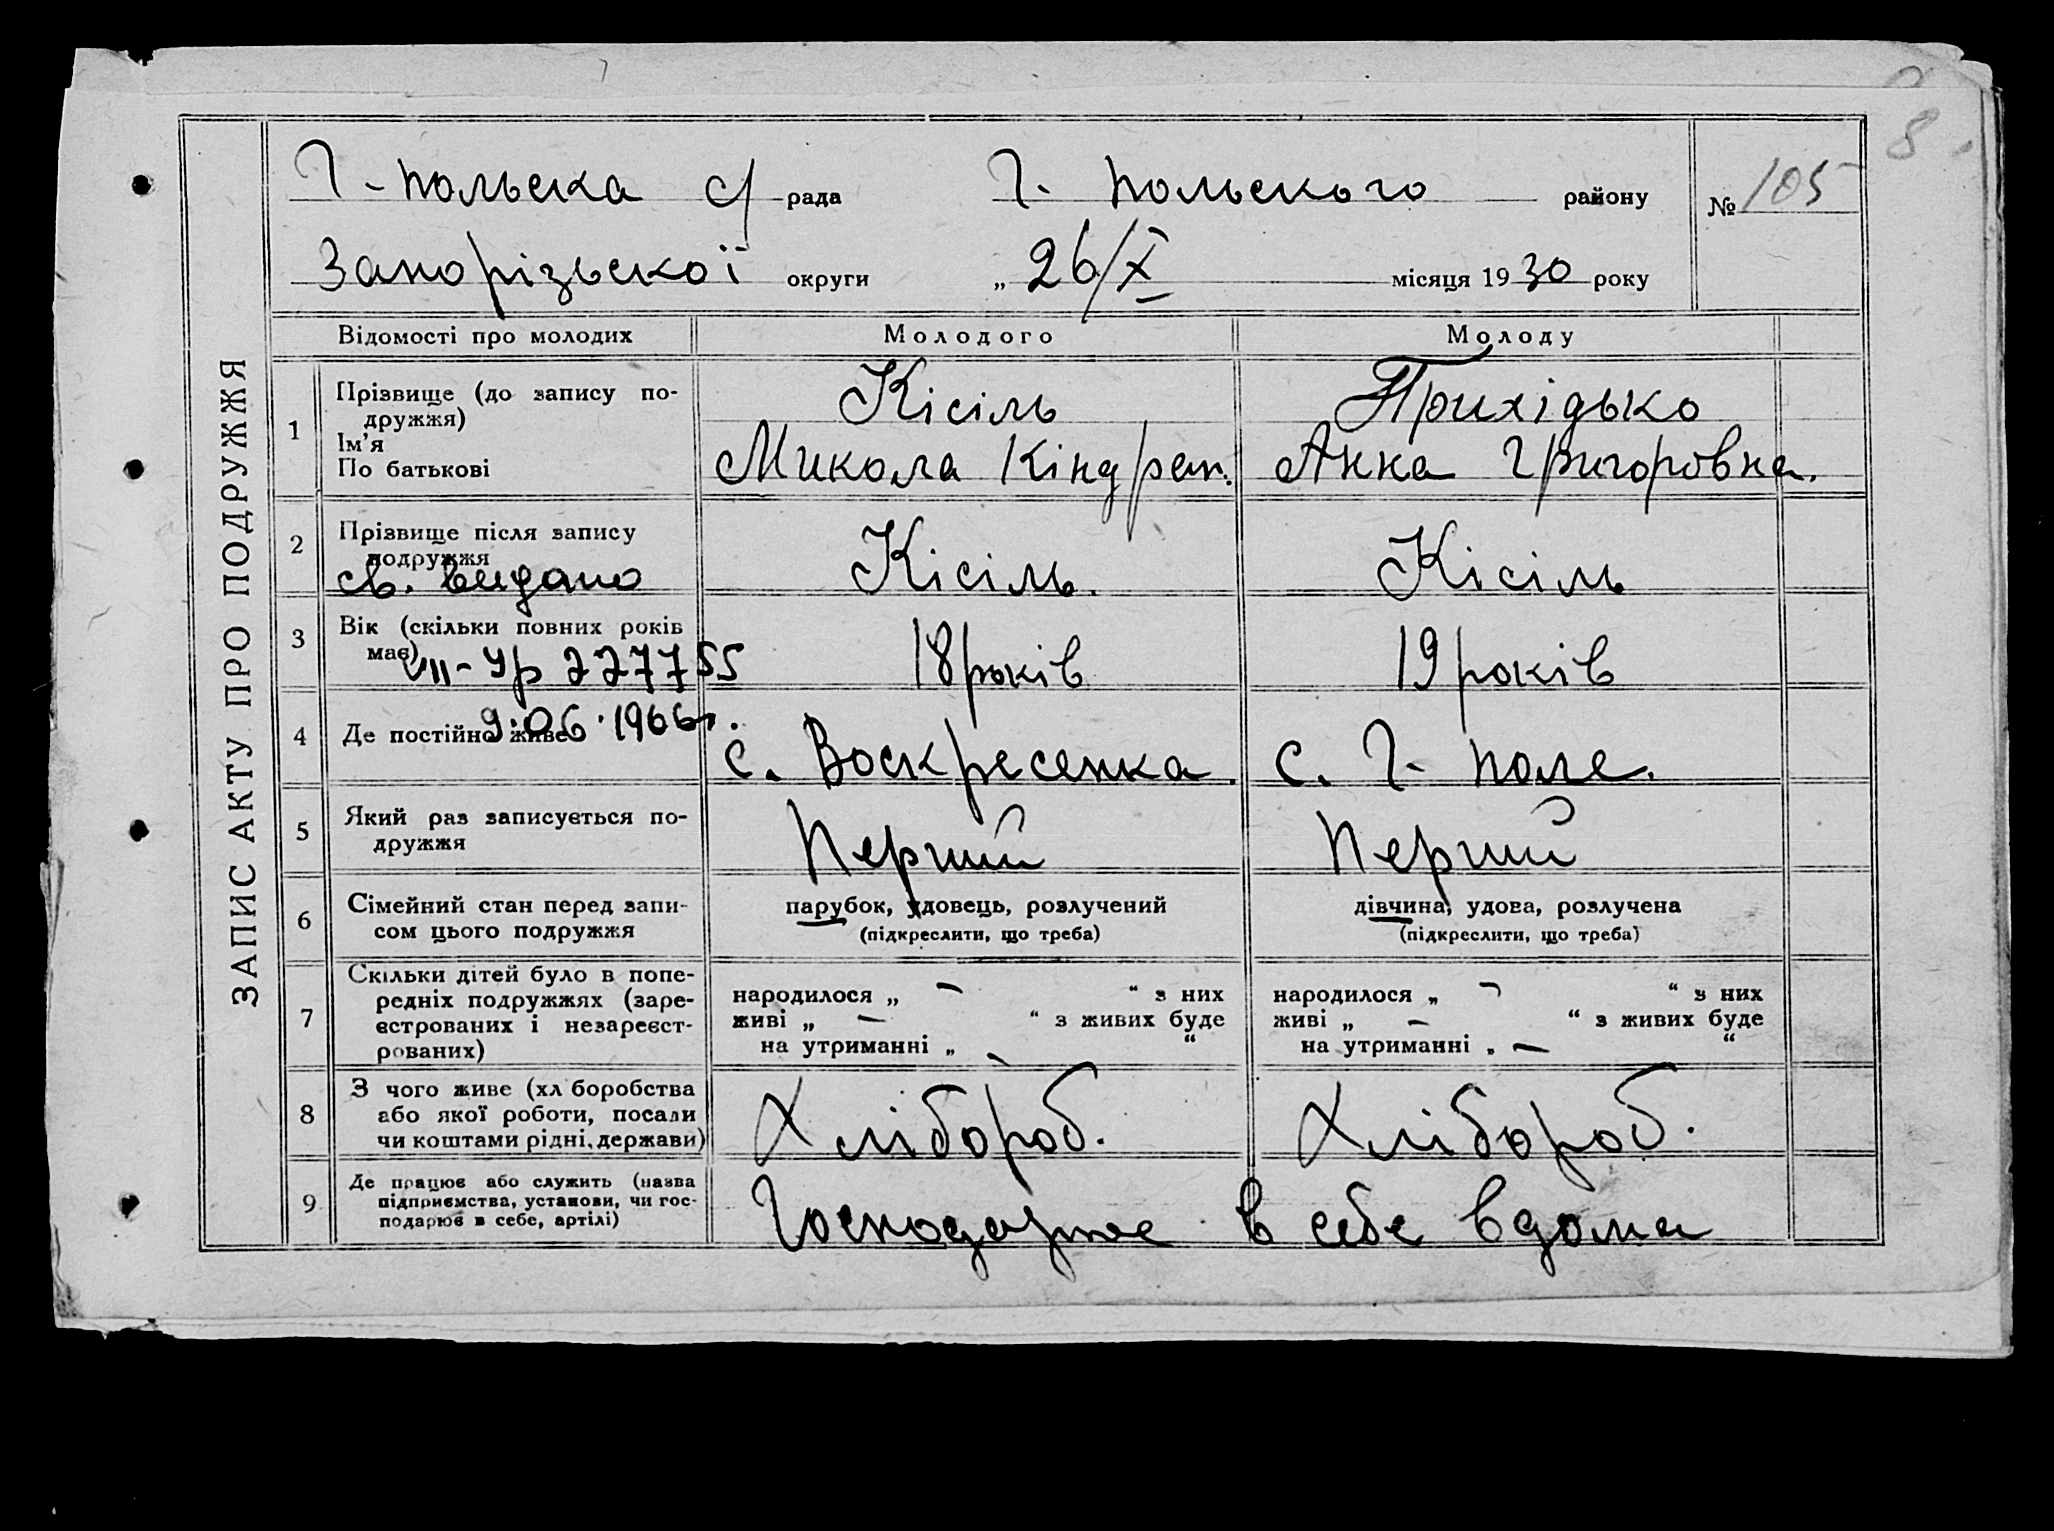 8
Г-польска с/ рада Г. польского району № 105
Запорізьскої округи „ 26/X місяця 1930 року
ЗАПИС АКТУ ПРО ПОДРУЖЖЯ
Відомості про молодих Молодого Молоду
1 Прізвище (до запису по-
дружжя) Кісіль Прихідько
Ім'я
По батькові Микола Кіндрат. Анна Григоровна.
2 Прізвище після запису
подружжя Кісіль. Кісіль
св. видано
3 Вік (скільки повних років
має) 18 років 19 років
VII-УР 227755
9.06.1966г.
4 Де постійно живе с. Воскресенка. с. Г- поле.
5 Який раз записується по-
дружжя Перший Перший
6 Сімейний стан перед запи-
сом цього подружжя
парубок, удовець, розлучений дівчина, удова, розлучена
(підкреслити, що треба) (підкреслити, що треба)
7 Скільки дітей було в попе-
редніх подружжях (заре-
єстрованих і незареєст-
рованих)
народилося „ — “ з них народилося „ — “ з них
живі „ — “ з живих буде живі „ — “ з живих буде
на утриманні „ — “ на утриманні „ — “
8 З чого живе (хл боробства
або якої роботи, посади
чи коштами рідні, держави)
Хлібороб. Хлібороб.
9 Де працює або служить (назва
підприємства, установи, чи гос-
подарює в себе, артілі)
Господарює в себе вдома